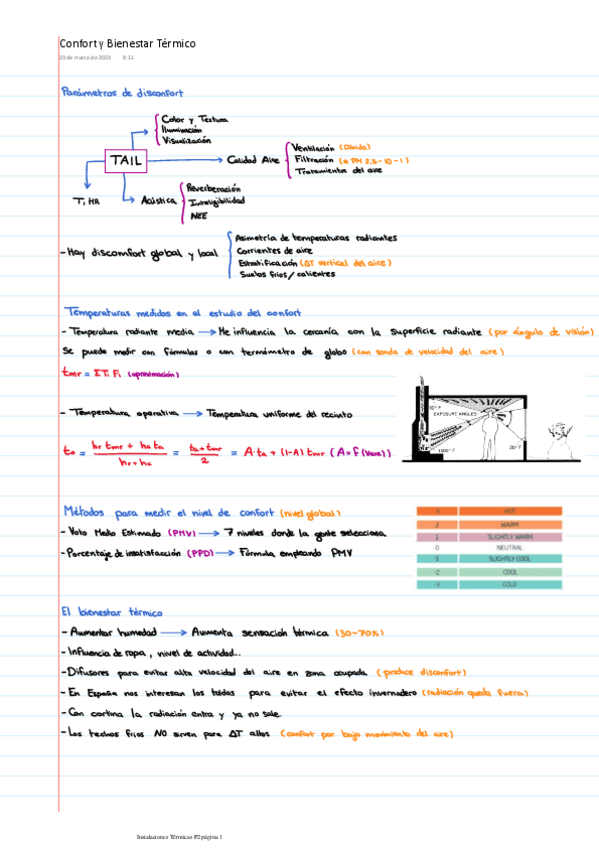 Confort y Bienestar Térmico
23 de marzo de 2023 8:11
Parámetros de disconfort
Color y Textura
Iluminación
Visualización
TAIL
Calidad Aire
Ventilación (Dbido)
Filtración (e PM 2,5-10-1)
Tratamientos del aire
T, HR
Acústica
Reverberación
Inteligibilidad
NEE
- Hay discomfort global y local
Asimetría de temperaturas radiantes
Corrientes de aire
Estratificación (ΔT vertical del aire)
Suelos fríos/calientes
Temperaturas medidas en el estudio del confort
- Temperatura radiante media → Me influencia la cercanía con la superficie radiante (por ángulo de visión)
Se puede medir con fórmulas o con termómetro de globo (con sonda de velocidad del aire)
tmr = ΣTi Fi (aproximación)
- Temperatura operativa → Temperatura uniforme del recinto
to = (hr tmr + hc ta)/(hr+hc) = (ta+tmr)/2 = A·ta + (1-A) tmr (A = f(Vaire))
EXPOSURE ANGLES
Métodos para medir el nivel de confort (nivel global)
- Voto Medio Estimado (PMV) → 7 niveles donde la gente selecciona
- Porcentaje de insatisfacción (PPD) → Fórmula empleando PMV
3 HOT
2 WARM
1 SLIGHTLY WARM
0 NEUTRAL
-1 SLIGHTLY COOL
-2 COOL
-3 COLD
El bienestar térmico
- Aumentar humedad → Aumenta sensación térmica (30-70%)
- Influencia de ropa, nivel de actividad...
- Difusores para evitar alta velocidad del aire en zona ocupada (produce disconfort)
- En España nos interesan los toldos para evitar el efecto invernadero (radiación queda fuera)
- Con cortina la radiación entra y ya no sale
- Los techos fríos NO sirven para ΔT altos (confort por bajo movimiento del aire)
Instalaciones Térmicas P2 página 1